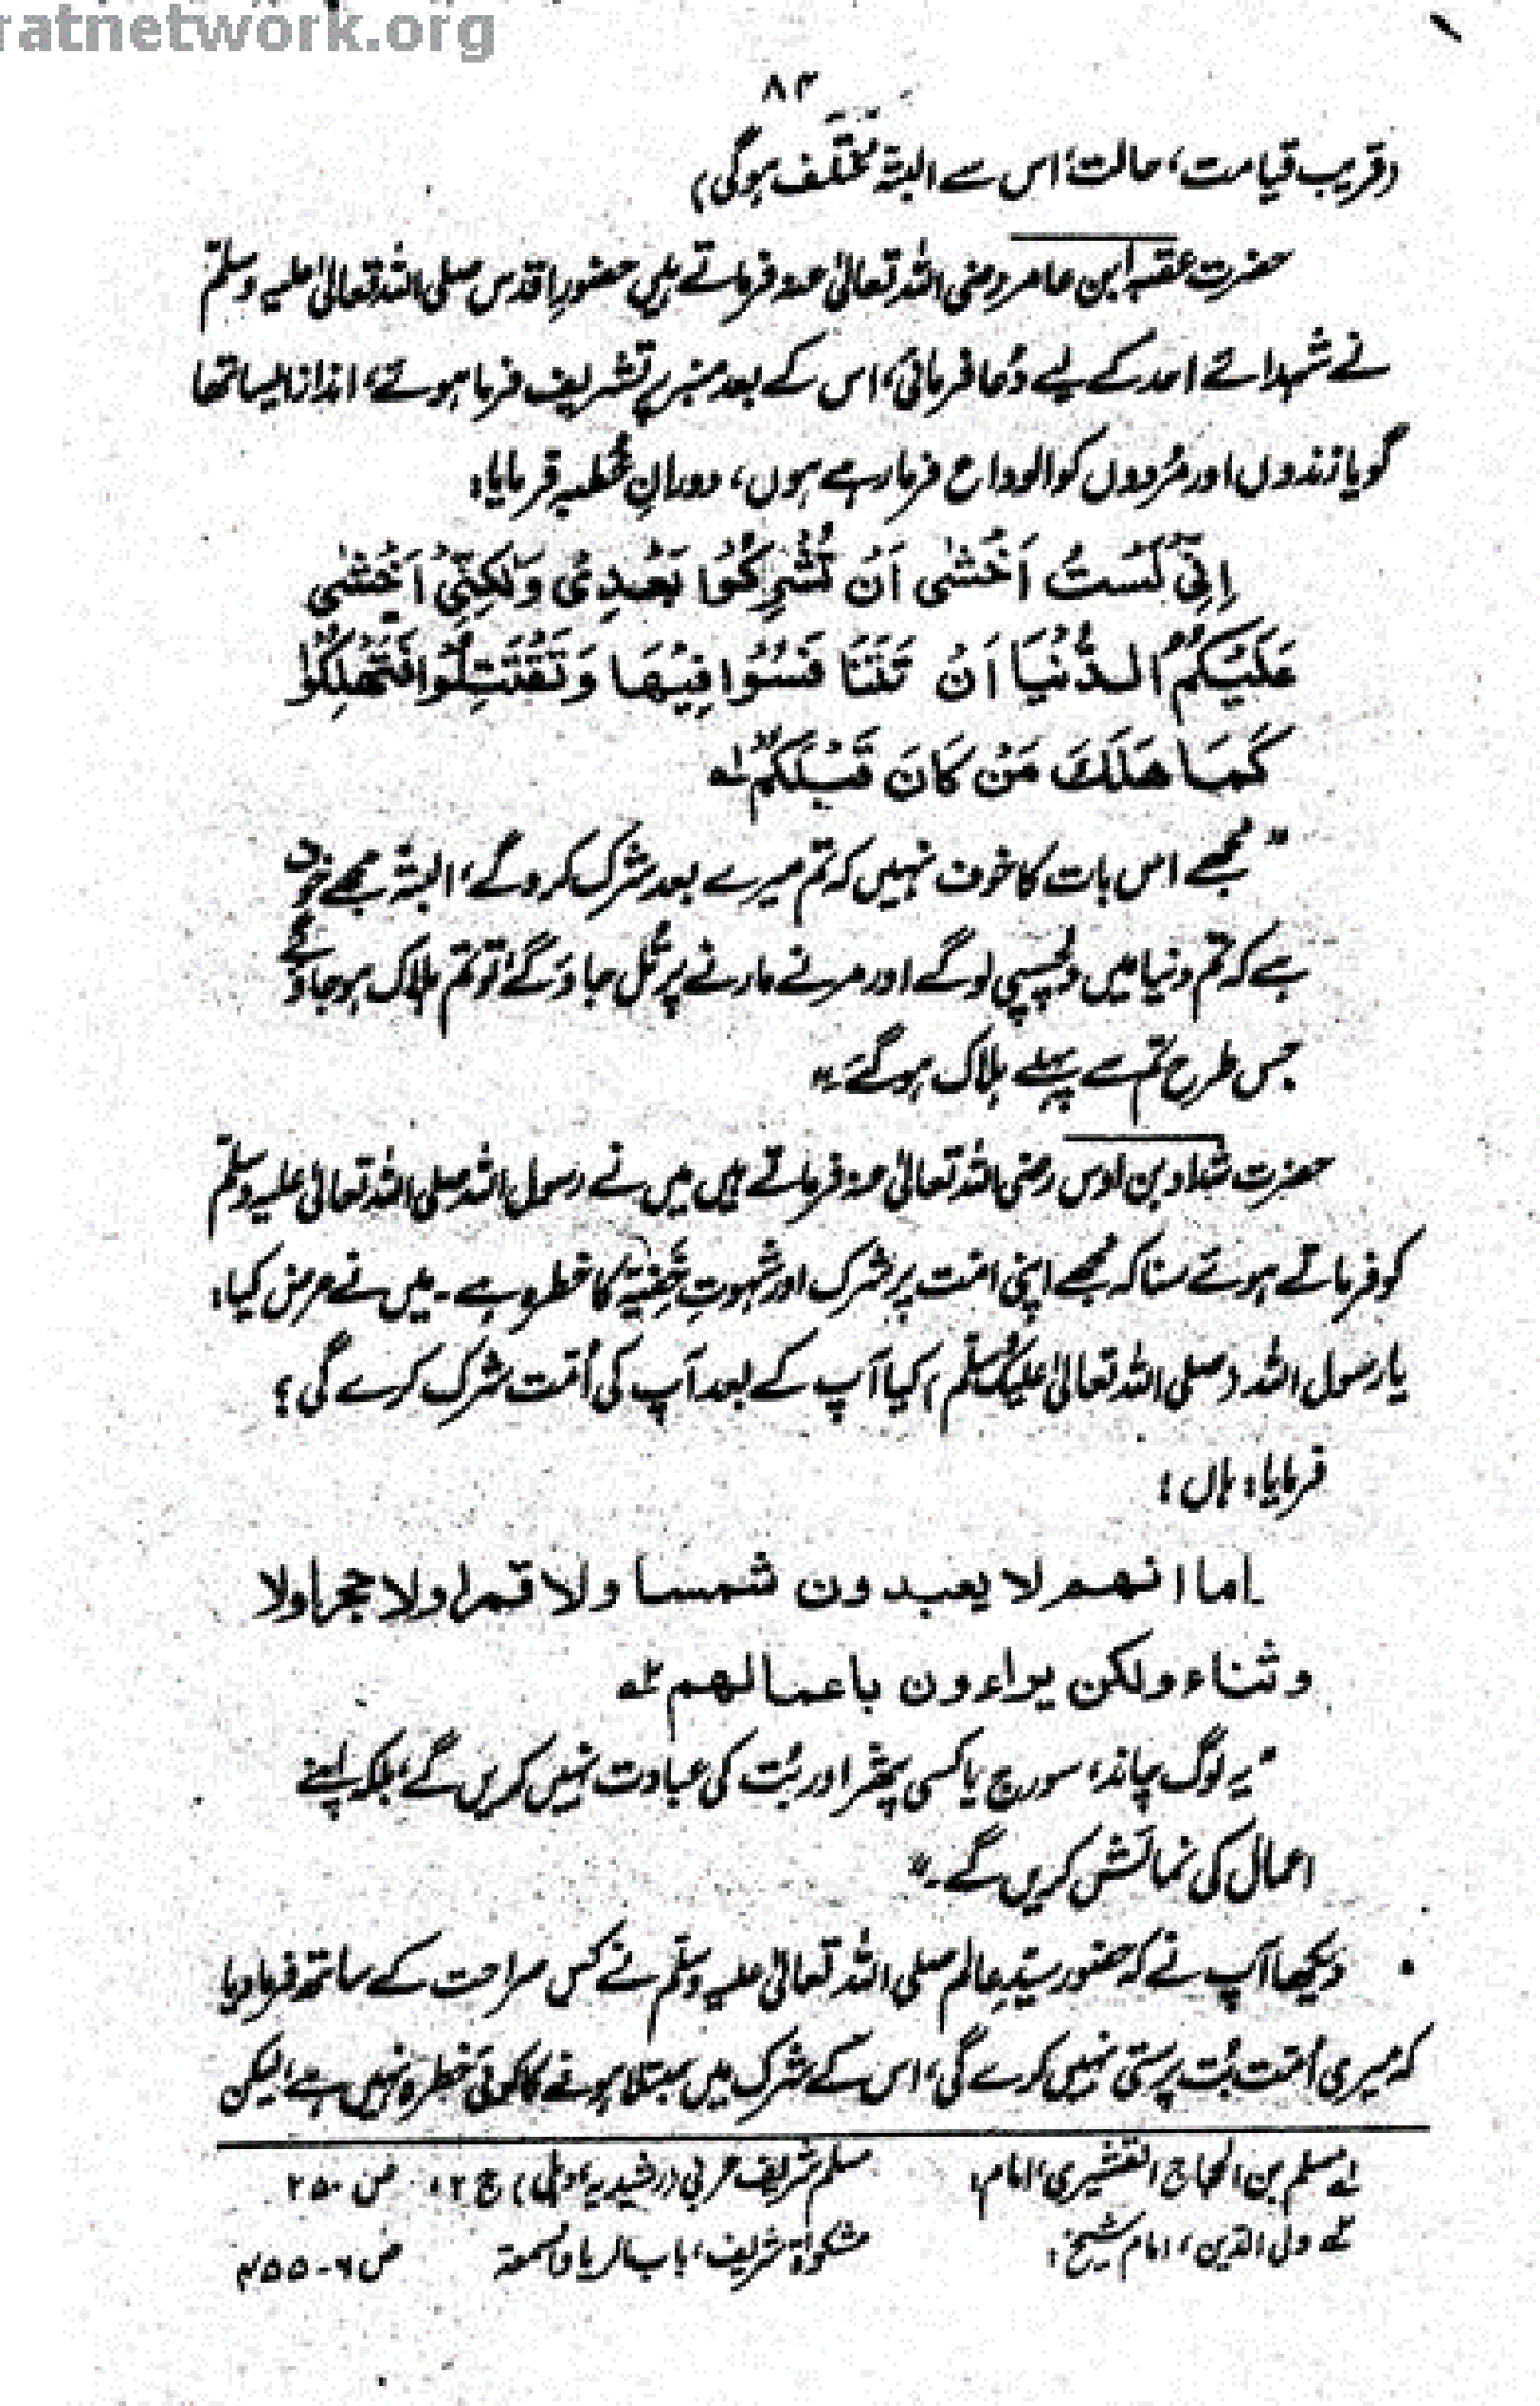 ratnetwork.org
۸۳
(قریب قیامت، حالت اس سے البتہ مختلف ہوگی)
حضرت عقبہ ابن عامر رضی اللہ تعالیٰ عنہ فرماتے ہیں حضورِ اقدس صلی اللہ تعالیٰ علیہ وسلم
نے شہدائے احد کے لیے دُعا فرمائی، اس کے بعد منبر پر تشریف فرما ہوئے، انداز ایسا تھا
گویا زندوں اور مُردوں کو الوداع فرما رہے ہوں، دورانِ خُطبہ فرمایا:
اِنِّیْ لَسْتُ اَخْشٰی اَنْ تُشْرِکُوْا بَعْدِیْ وَلٰکِنِّیْ اَخْشٰی
عَلَیْکُمُ الدُّنْیَا اَنْ تَنَافَسُوْا فِیْهَا وَتَقْتَتِلُوْا فَتَهْلِکُوْا
کَمَا هَلَکَ مَنْ کَانَ قَبْلَکُمْ لہ
”مجھے اس بات کا خوف نہیں کہ تم میرے بعد شرک کرو گے، البتہ مجھے خوف
ہے کہ تم دنیا میں دلچسپی لو گے اور مرنے مارنے پر تُل جاؤ گے تو تم ہلاک ہو جاؤ گے
جس طرح تم سے پہلے ہلاک ہو گئے۔“
حضرت شداد بن اوس رضی اللہ تعالیٰ عنہ فرماتے ہیں میں نے رسول اللہ صلی اللہ تعالیٰ علیہ وسلم
کو فرماتے ہوئے سنا کہ مجھے اپنی امت پر شرک اور شہوتِ خَفِیَّہ کا خطرہ ہے۔ میں نے عرض کیا:
یا رسول اللہ (صلی اللہ تعالیٰ علیک وسلم) کیا آپ کے بعد آپ کی اُمت شرک کرے گی؟
فرمایا: ہاں!
اما انهم لا یعبدون شمسا ولا قمرا ولا حجرا ولا
وثناء ولکن یراءون باعمالهم ۲ہ
”یہ لوگ چاند، سورج یا کسی پتھر اور بُت کی عبادت نہیں کریں گے، بلکہ اپنے
اعمال کی نمائش کریں گے۔“
• دیکھا آپ نے کہ حضور سیدِ عالم صلی اللہ تعالیٰ علیہ وسلم نے کس صراحت کے ساتھ فرما دیا
کہ میری اُمت بُت پرستی نہیں کرے گی، اس کے شرک میں مبتلا ہونے کا کوئی خطرہ نہیں ہے، لیکن
لہ مسلم بن الحجاج القشیری، امام: مسلم شریف عربی (رشیدیہ، دہلی) ج ۲، ص ۲۵۰
۲ہ ولی الدین، امام شیخ: مشکوٰۃ شریف، باب الریاء والسمعۃ ص ۶-۴۵۵